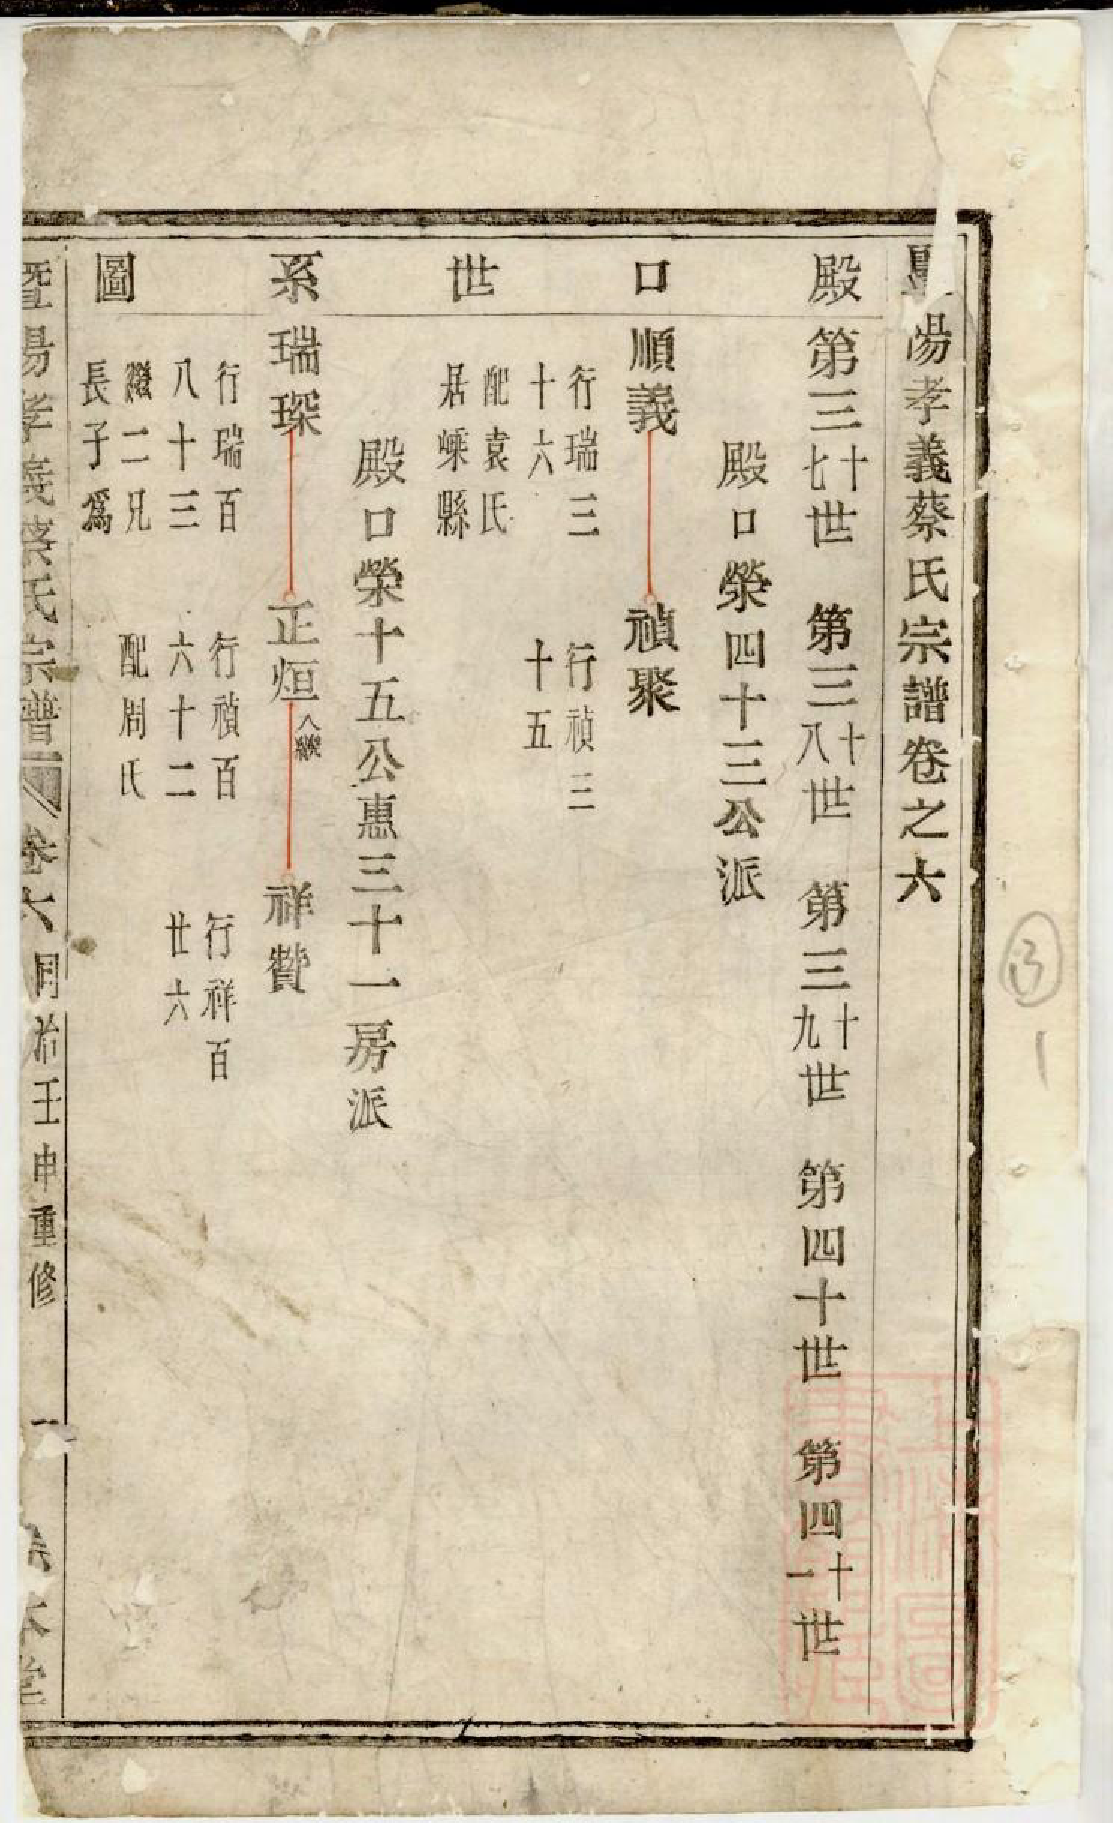 暨陽孝義蔡氏宗譜卷之六
殿口世系圖
第三十七世 第三十八世 第三十九世 第四十世 第四十一世
殿口榮四十三公派
順義 禎聚
行瑞三
十六
配袁氏
居嵊縣
行禎三
十五
殿口榮十五公惠三十一房派
瑞琛 正烜 入繼 祥贊
行瑞百
八十三
繼二兄
長子爲
行禎百
六十二
配周氏
行祥百
廿六
暨陽孝義蔡氏宗譜 卷六 同治壬申重修 一
13
1